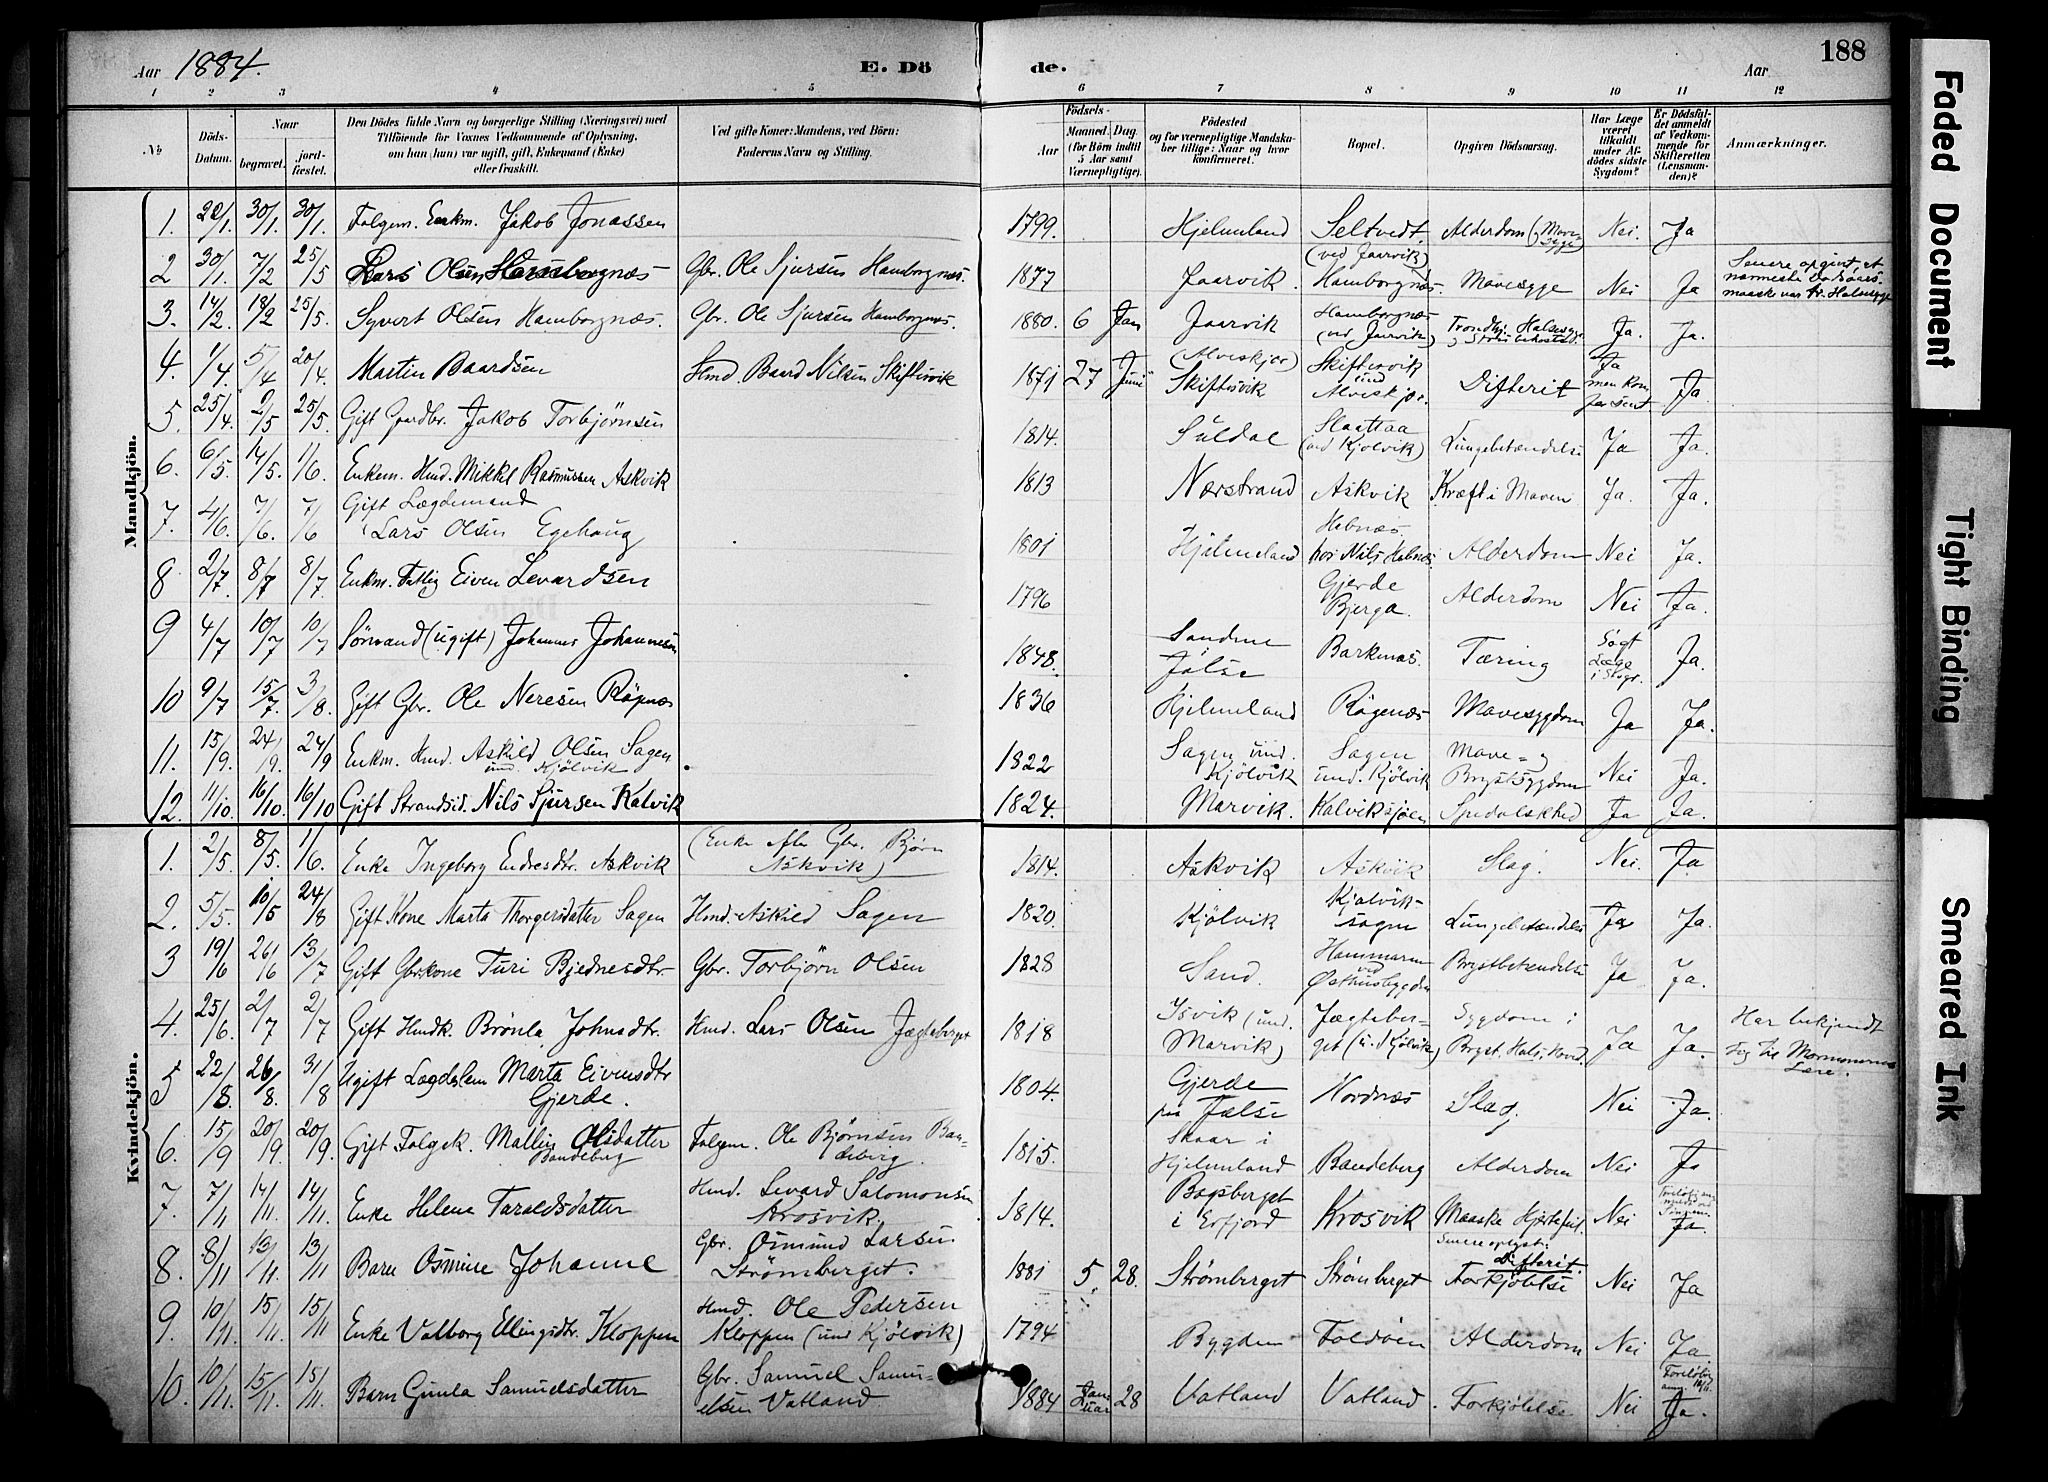 Aar 1884. E. Dö de. Aar 188
1 2 3 4 5 6 7 8 9 10 11 12
№ Döds-Datum. Naar begravet. jord-fæstet. Den Dödes fulde Navn og borgerlige Stilling (Næringsvei) med Tilföiende for Voxnes Vedkommende af Oplysning, om han (hun) var ugift, gift, Enkemand (Enke) eller fraskilt. Ved gifte Koner: Mandens, ved Börn: Faderens Navn og Stilling. Födsels- Aar Maaned. Dag. (for Börn indtil 5 Aar samt Værnepligtige). Födested og for værnepligtige Mandskaber tillige: Naar og hvor konfirmeret. Bopæl. Opgiven Dödsaarsag. Har Læge været tilkaldt under Afdödes sidste Sygdom? Er Dödsfaldet anmeldt af Vedkommende for Skifteretten (Lensmanden)? Anmærkninger.
Mandkjön.
1. 22/1. 30/1. 30/1. Folgem. Enkm. Jakob Jonassen 1799. Hjelmeland Seltvedt. (ved Jaarvik) Alderdom (Mavesyge) Nei. Ja
2 30/1. 7/2 25/5 Lars Olsen Hamborgnæs Gbr. Ole Sjursen Hamborgnæs. 1877 Jaarvik. Hamborgnæs. Mavesyge Nei Ja Senere opgivet, at nærmeste Dødsaars. maaske var Halssyge
3. 14/2. 18/2 25/5. Syvert Olsen Hamborgnæs. Gbr. Ole Sjursen Hamborgnæs. 1880. 6 Jan Jaarvik Hamborgnæs (ved Jaarvik) Halssyge Ja. Ja.
4. 1/4. 5/4 20/4. Martin Baardsen Hmd. Baard Nilsen Skiftesvik 1871 27 Juni (Alveskjær) Skiftesvik Skiftesvik und Alveskjær. Difterit Ja men kom for sent Ja.
5. 25/4. 2/5 25/5 Gift Gaardbr. Jakob Torbjörnsen 1814. Suldal Slaattaa (ved Kjölvik) Lungebetændelse Ja Ja.
6. 6/5. 14/5. 1/6. Enkem. Hmd. Mikkel Rasmussen Askvik 1813 Nærstrand Askvik Kræft i Maven Ja. Ja.
7. 4/6. 7/6. 7/6 Gift Lægdemand Lars Olsen Egehaug 1801 Hjelmeland Hebnæs hos Nils Hebnæs Alderdom Nei Ja.
8 2/7. 8/7 8/7. Enkm. Fattig Eiven Levardsen 1796 Gjerde Bjerga. Alderdom Nei Ja.
9 4/7 10/7 10/7 Sömand (ugift) Johannes Johannesen 1848. Sandene Jelse Barkenæs. Tæring Søgt Læge i Stvgr. Ja.
10 9/7 15/7. 3/8. Gift Gbr. Ole Neresen Rögnæs 1836 Hjelmeland Rögenæs Mavesygdom Ja Ja.
11. 15/9. 24/9. 24/9 Enkm. Hmd. Askild Olsen Sagen und. Kjölvik 1822 Sagen und. Kjölvik Sagen und. Kjölvik Mave- og Brystsygdom Nei Ja.
12. 11/10. 16/10. 16/10 Gift Strandsid. Nils Sjursen Kalvik 1824. Marvik. Kalviksjøen Spedalskhed Ja Ja.
Kvindekjön.
1. 2/5. 8/5. 1/6. Enke Ingeborg Endresdtr. Askvik (Enke efter Gbr. Björn Askvik) 1814. Askvik Askvik Slag. Nei. Ja
2. 5/5. 10/5 24/8 Gift Kone Marta Thorgersdatter Sagen Hmd. Askild Sagen 1820. Kjölvik Kjølviksagen Lungebetændelse Ja Ja.
3 19/6 26/6 13/7 Gift Gbrkone Turi Bjednesdtr. Gbr. Torbjörn Olsen 1828 Sand. Hammaren ved Østhusbygden Brystbetændelse Ja Ja.
4. 25/6. 2/7 2/7 Gift Hmdk. Brönla Johnsdtr. Hmd. Lars Olsen Jægteberget 1818 Isvik (und. Marvik) Jægteberget (u. Kjölvik) Sygdom i Bryst, Hals, Hoved. Ja Ja. Har bekjendt sig til Mormonernes Lære.
5 22/8. 26/8. 31/8 Ugift Lægdslem Marta Eivensdtr Gjerde. 1804. Gjerde paa Jelse Nordnæs Slag. Nei Ja.
6. 15/9 20/9. 20/9. Gift Folgek. Malline Olsdatter Bandeberg Folgem. Ole Bjørnsen Bandeberg. 1815. Skaar i Hjelmeland Bandeberg Alderdom Nei Ja
7. 7/11 14/11. 14/11. Enke Helene Taraldsdatter Hmd. Levard Salomonsen Krosvik. 1814. Bogsberget i Erfjord Krosvik Maaske Hjertefeil. Nei Ja.
8. 8/11 13/11. 13/11 Barn Osmine Johanne Gbr. Osmund Larsen Strömberget. 1881 5. 28. Strömberget Strömberget Senere oplyst: Difterit. Forkjölelse Nei Ja
9. 10/11. 15/11. 15/11 Enke Valborg Ellingsdtr. Kloppen Hmd. Ole Pedersen Kloppen (und Kjölvik) 1794 Bygden Foldöen Alderdom Nei Ja
10. 10/11. 15/11. 15/11. Barn Gunla Samuelsdatter Gbr. Samuel Samuelsen Vatland 1884 Januar 28 Vatland Vatland Forkjölelse Nei Ja.
Faded Document
Tight Binding
Smeared Ink